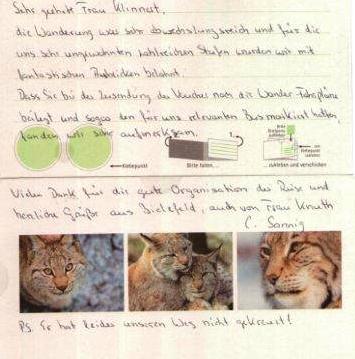 Sehr geehrte Frau Klinnert,
die Wanderung war sehr abwechslungsreich und für die
uns sehr ungewohnten zahlreichen Stufen wurden wir mit
fantastischen Ausblicken belohnt.
Dass Sie bei der Zusendung des Voucher noch die Wander-Fahrpläne
beilegt und sogar den für uns relevanten Bus markiert hatten,
fanden wir sehr aufmerksam.
Klebepunkt
Bitte falten...
...zukleben und verschicken
Vielen Dank für die gute Organisation der Reise und
herzliche Grüße aus Bielefeld, auch von Frau Knuth
C.
PS. Er hat leider unseren Weg nicht gekreuzt!